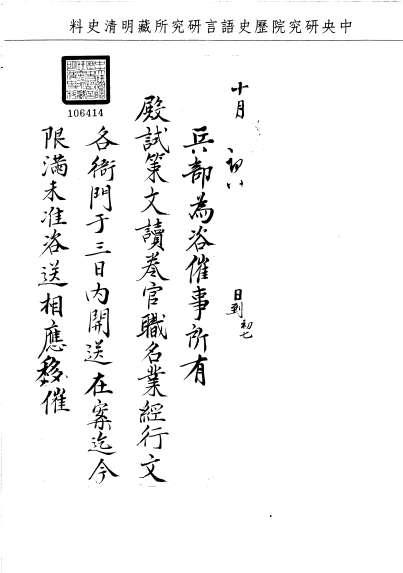 中央研究院歷史語言研究所藏明清史料
106414
十月
初八
日到
初七
兵部為咨催事所有
殿試策文讀卷官職名業經行文
各衙門于三日內開送在案迄今
限滿未准咨送相應移催